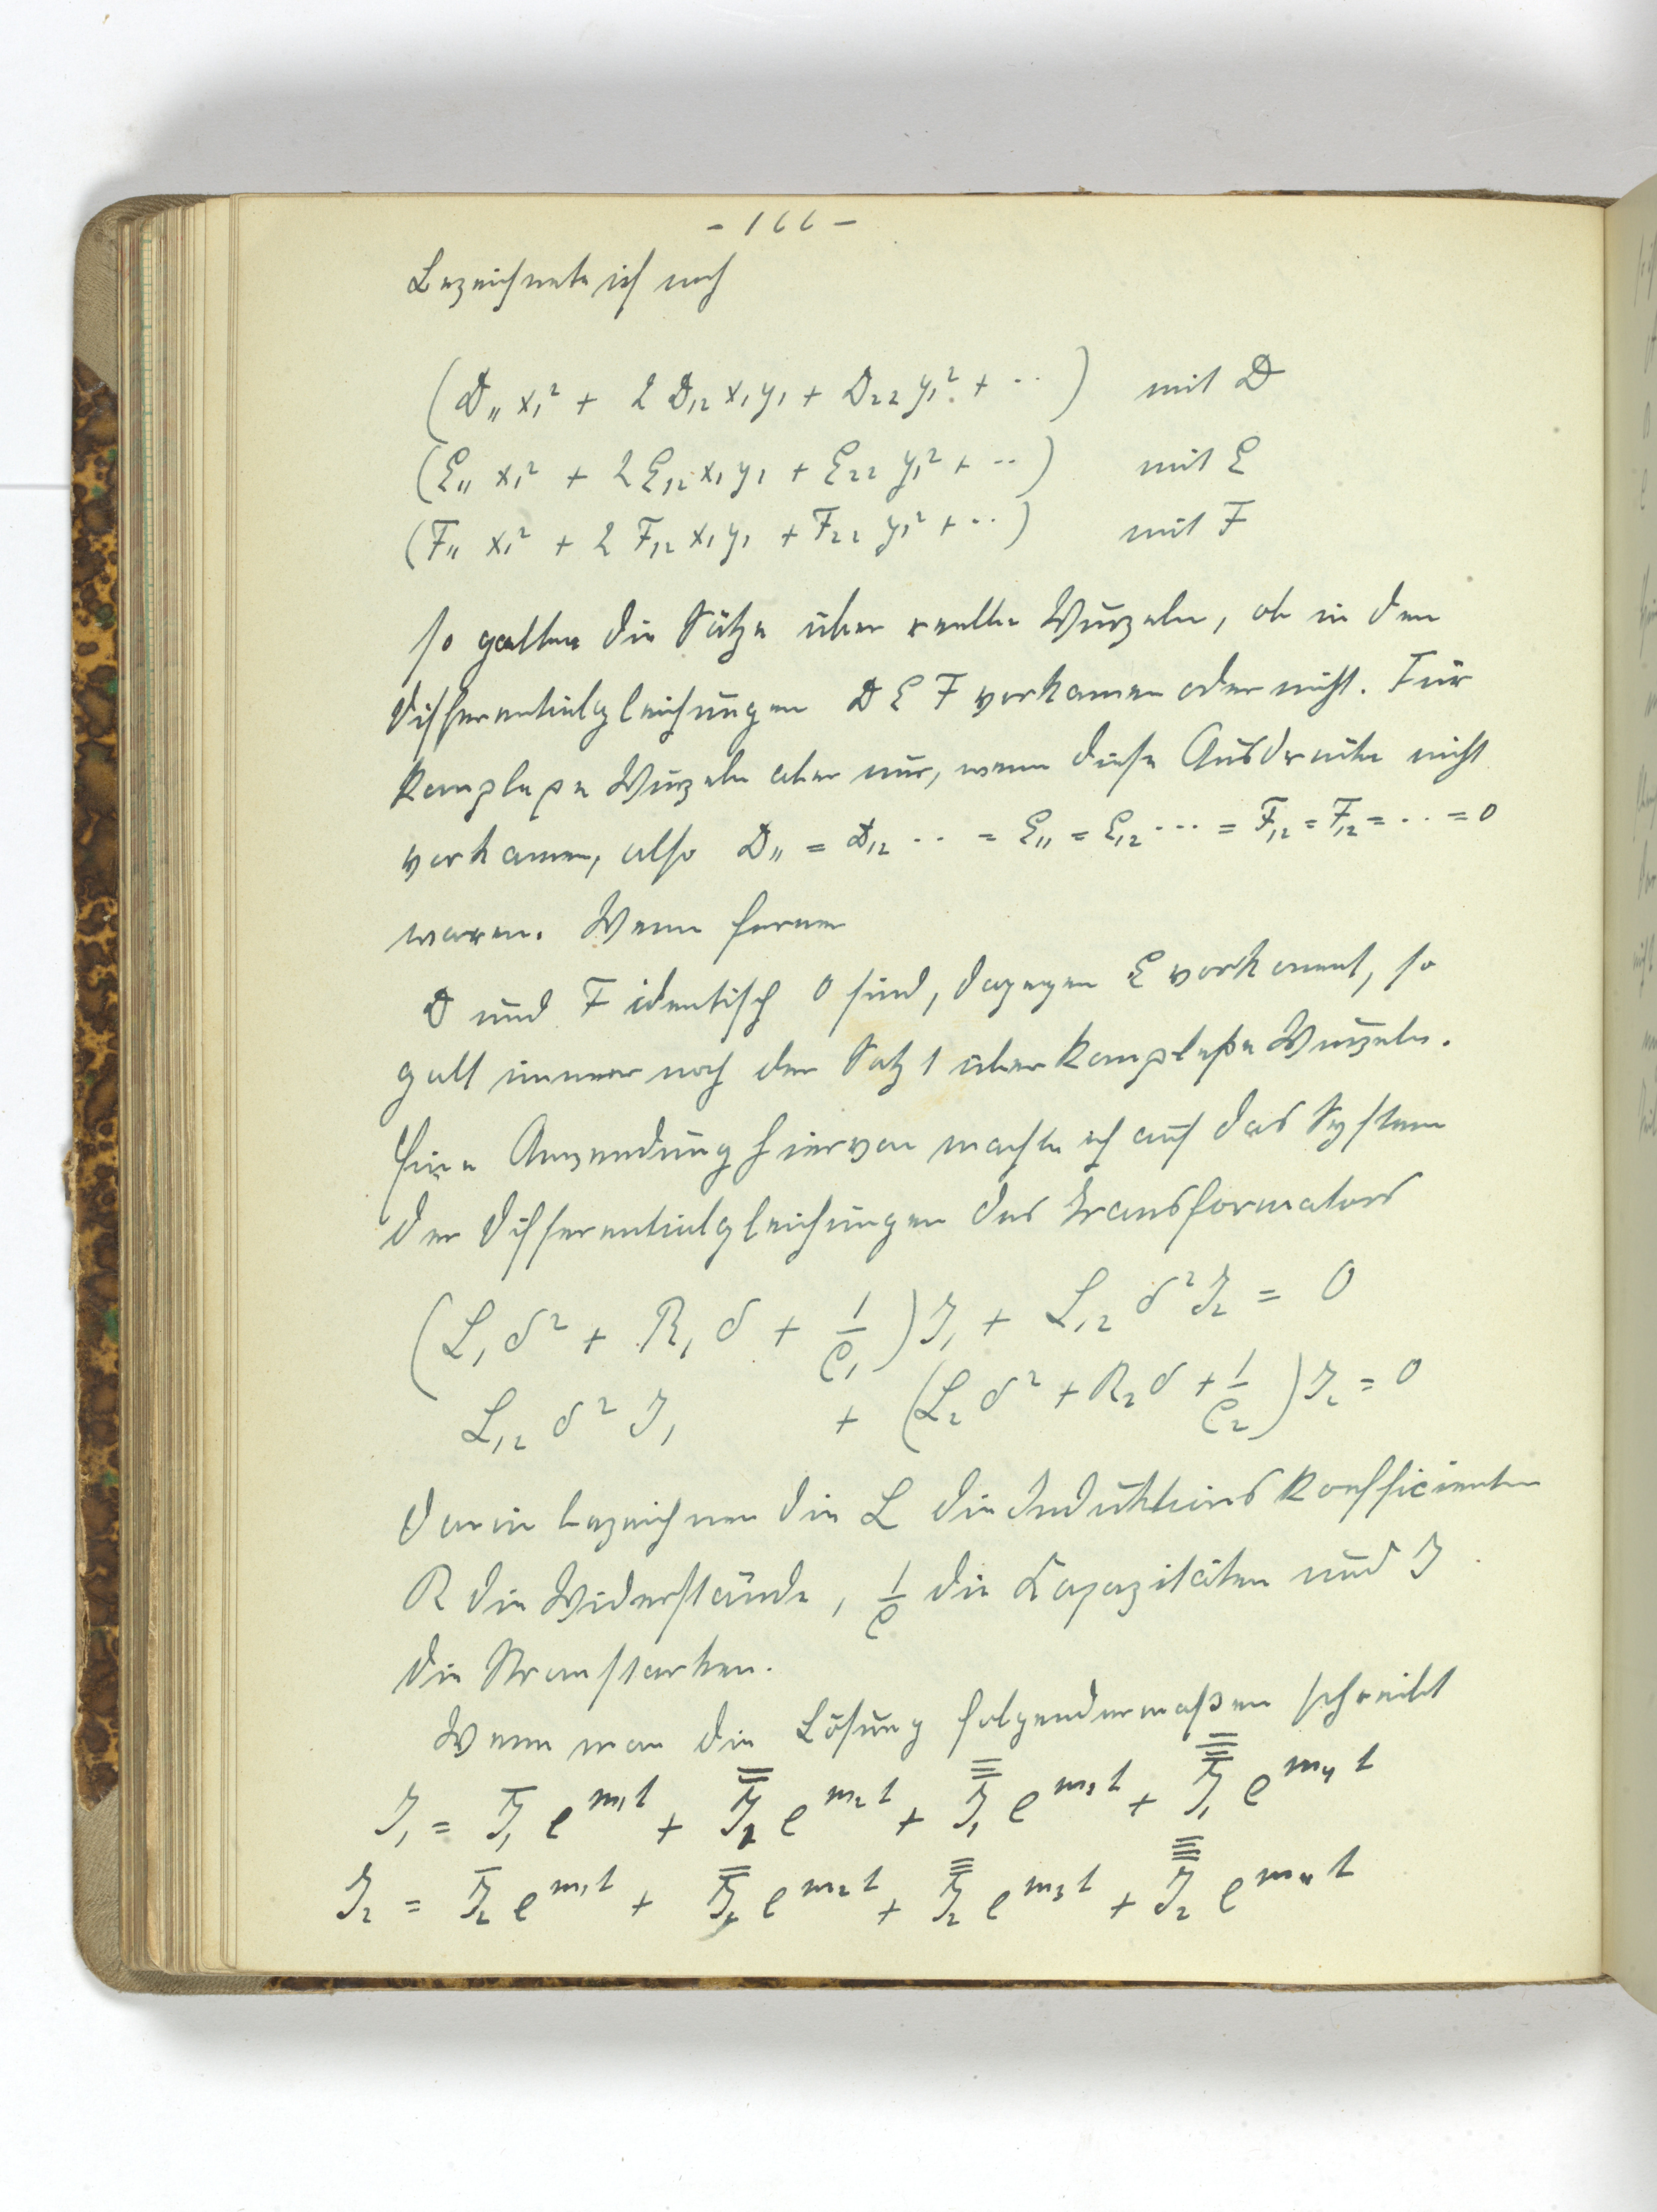 - 166 -
Bezeichnete ich noch
(D₁₁ x₁² + 2 D₁₂ x₁ y₁ + D₂₂ y₁² + ··) mit D
(E₁₁ x₁² + 2 E₁₂ x₁ y₁ + E₂₂ y₁² + ··) mit E
(F₁₁ x₁² + 2 F₁₂ x₁ y₁ + F₂₂ y₁² + ··) mit F
so galten die Sätze über reelle Wurzeln, ob in den
Differentialgleichungen D E F vorkamen oder nicht. Für
komplexe Wurzeln aber nur, wenn diese Ausdrücke nicht
vorkamen, also D₁₁ = D₁₂ ·· = E₁₁ = E₁₂ ··· = F₁₂ = F₁₂ = ·· = 0
waren. Wenn ferner
D und F identisch 0 sind, dagegen E vorkommt, so
galt immer noch der Satz 1 über komplexe Wurzeln.
Eine Anwendung hiervon machte ich auf das System
der Differentialgleichungen des Transformators
(L₁ δ² + R₁ δ + 1/C₁) J₁ + L₁₂ δ² J₂ = 0
L₁₂ δ² J₁ + (L₂ δ² + R₂ δ + 1/C₂) J₂ = 0
darin bezeichnen die L die Induktionskoefficienten
R die Widerstände, 1/C die Kapazitäten und J
die Stromstärken.
Wenn man die Lösung folgendermaßen schreibt
J₁ = J̅₁ e^{m₁t} + J̿₁ e^{m₂t} + J̿̅₁ e^{m₃t} + J̿̿₁ e^{m₄t}
J₂ = J̅₂ e^{m₁t} + J̿₂ e^{m₂t} + J̿̅₂ e^{m₃t} + J̿̿₂ e^{m₄t}